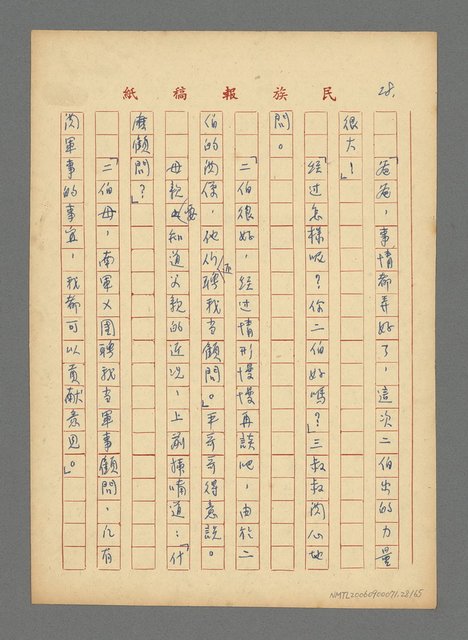 28.
民族報稿紙
「爸爸，事情都弄好了，這次二伯出的力量
很大！」
「經过怎樣呢？你二伯好嗎？」三叔叔関心地
問。
「二伯很好，經过情形慢慢再談吧，由於二
伯的関係，他們還聘我当顧問。」平哥哥得意説。
母親要知道父親的近況，上前插嘴道：「什
麼顧問？」
「二伯母，南軍乂團聘我当軍事顧問，凡有
関軍事的事宜，我都可以貢献意見」。
NMTL20060900071.28/65